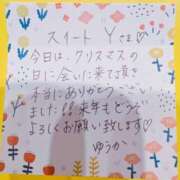 スイート Yさま♡
今日は、クリスマスの
日に会いに来て頂き
本当にありがとうござい
ました!!来年もどうぞ
よろしくお願い致します♡
ゆうか